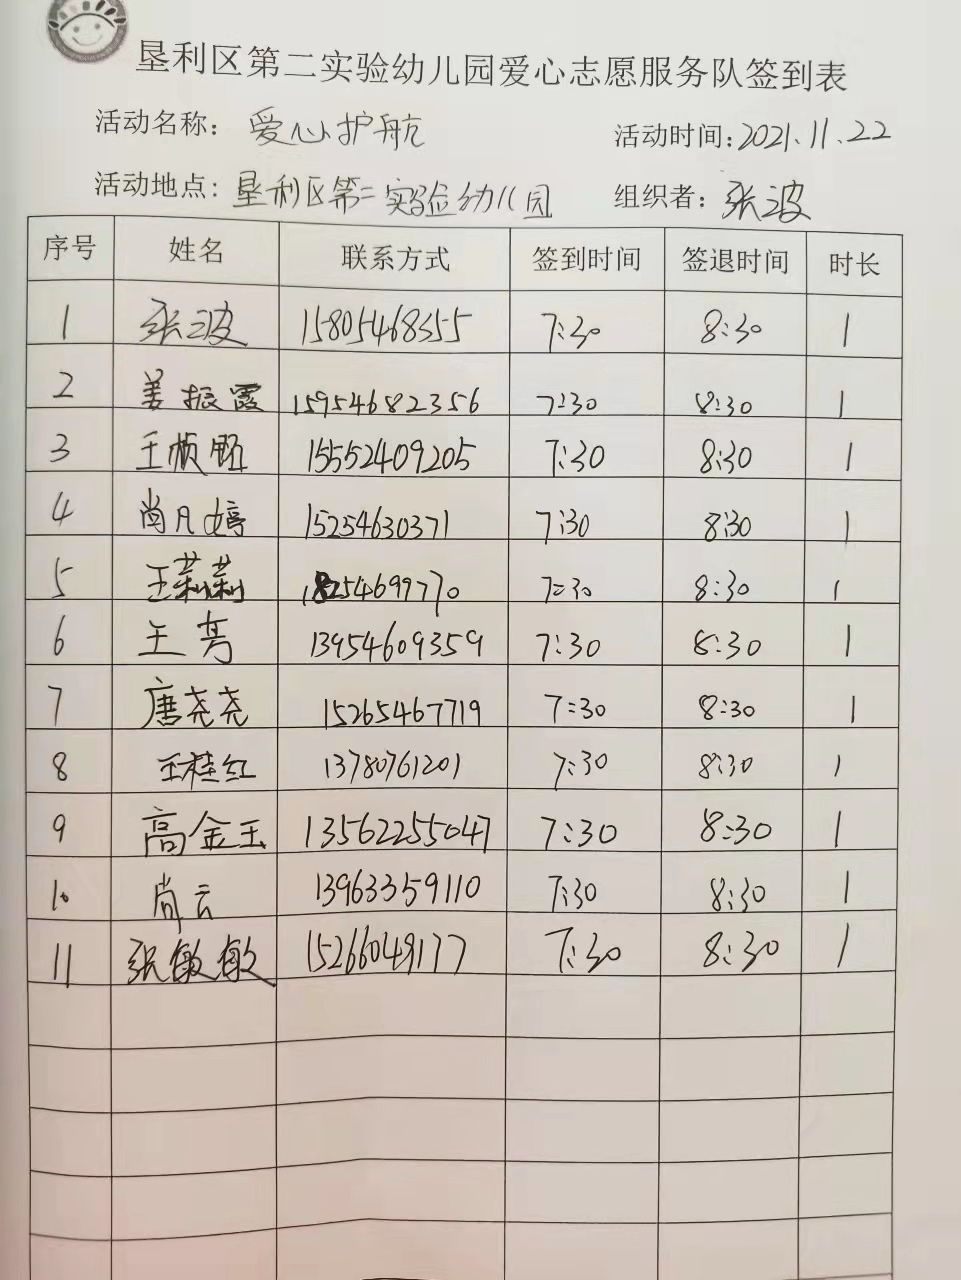 垦利区第二实验幼儿园爱心志愿服务队签到表
活动名称: 爱心护航 活动时间:2021.11.22
活动地点: 垦利区第二实验幼儿园 组织者: 张波
序号 姓名 联系方式 签到时间 签退时间 时长
1 张波 15805468355 7:30 8:30 1
2 姜振霞 15954682356 7:30 8:30 1
3 王桢 15552409205 7:30 8:30 1
4 尚凡婷 15254630371 7:30 8:30 1
5 王莉莉 18254699770 7:30 8:30 1
6 王芳 13954609359 7:30 8:30 1
7 唐尧尧 15265467719 7:30 8:30 1
8 王桂红 13780761201 7:30 8:30 1
9 高金玉 13562255047 7:30 8:30 1
10 尚云 13963359110 7:30 8:30 1
11 张敏敏 15266049177 7:30 8:30 1